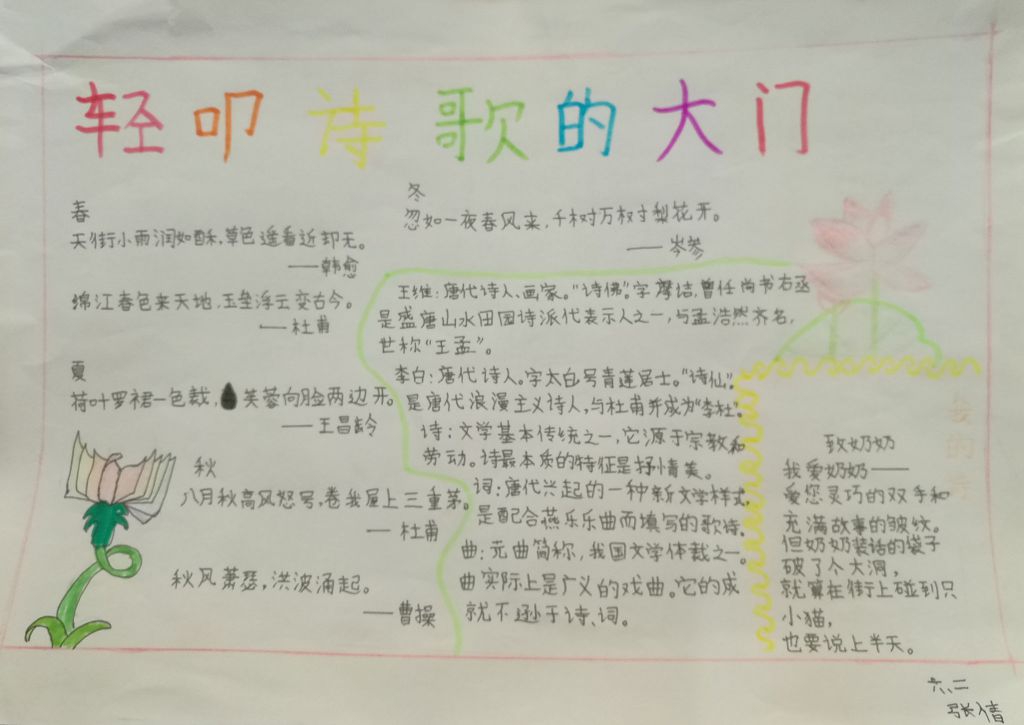 轻叩诗歌的大门
春
天街小雨润如酥，草色遥看近却无。
——韩愈
绵江春色来天地，玉垒浮云变古今。
——杜甫
夏
荷叶罗裙一色裁，芙蓉向脸两边开。
——王昌龄
秋
八月秋高风怒号，卷我屋上三重茅。
——杜甫
秋风萧瑟，洪波涌起。
——曹操
冬
忽如一夜春风来，千树万树梨花开。
——岑参
王维：唐代诗人、画家。“诗佛”。字摩诘，曾任尚书右丞
是盛唐山水田园诗派代表示人之一，与孟浩然齐名，
世称“王孟”。
李白：唐代诗人。字太白号青莲居士。“诗仙”。
是唐代浪漫主义诗人，与杜甫并成为“李杜”。
诗：文学基本传统之一，它源于宗教和
劳动。诗最本质的特征是抒情美。
词：唐代兴起的一种新文学样式，
是配合燕乐乐曲而填写的歌诗。
曲：元曲简称，我国文学体裁之一。
曲实际上是广义的戏曲。它的成
就不逊于诗、词。
我的诗
致奶奶
我爱奶奶——
爱您灵巧的双手和
充满故事的皱纹。
但奶奶装话的袋子
破了个大洞，
就算在街上碰到只
小猫，
也要说上半天。
六、二